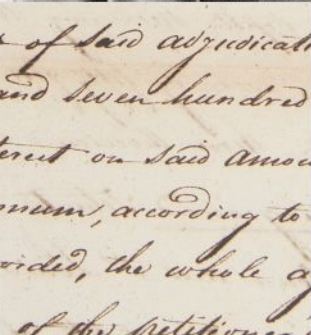 of said adjudicati
and seven hundred
terest on said amou
nnum, according to
orded, the whole a
of the petitioner